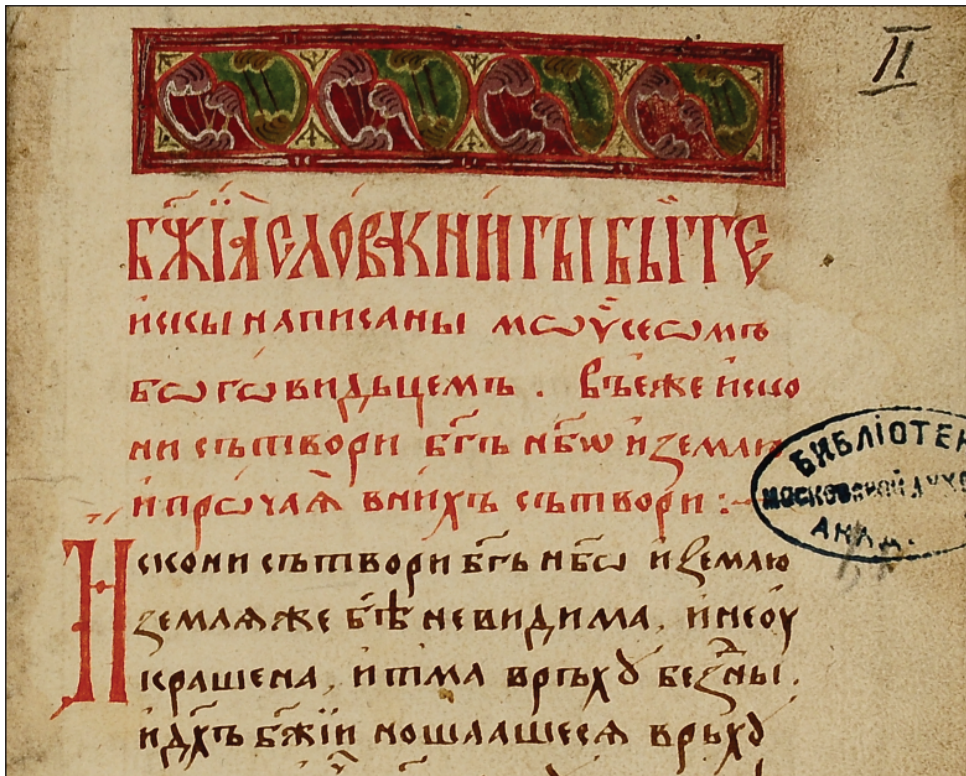 II
Бж҃їѧ словѧ книгы быте
искы написаны мѡѵ̈сеѡмъ
бѡгѡвидьцемъ . въеже иско
ни сътвори бг҃ъ нб҃ѡ и землю
и прѡчаѧ вних̾ъ сътвори :~
Искони сътвори бг҃ъ нб҃ѡ и землю
землѧже бѣ невидима, и неоу
крашена, и тма врьхꙋ безны.
и дх҃ъ бж҃їи ношаашесѧ врьхꙋ
БИБЛІОТЕК
МОСКОВСКОЙ ДУХО
АКАД.